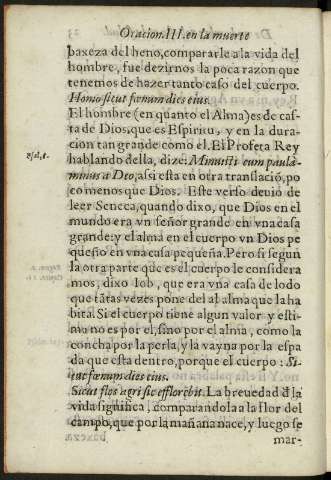 Oracion.III.en la muerte
baxeza del heno, compararle a la vida del
hombre, fue dezirnos la poca razon que
tenemos de hazer tanto caso del cuerpo.
Homo sicut fœnum dies eius.
El hombre (en quanto el Alma) es de cas-
ta de Dios, que es Espiritu, y en la dura-
cion tan grande como èl. El Profeta Rey
hablando della, dize: Minuisti eum paulò
minus a Deo, assi esta en otra translaciõ, po
co menos que Dios. Este verso deuiò de
leer Seneca, quando dixo, que Dios en el
mundo era vn señor grande en vna casa
grande: y el alma en el cuerpo vn Dios pe
queño en vna casa pequeña. Pero si segun
la otra parte que es el cuerpo le considera
mos, dixo Iob, que era vna casa de lodo
que tãtas vezes pone del al alma que la ha
bita. Si el cuerpo tiene algun valor y esti-
mo no es por el, sino por el alma, como la
concha por la perla, y la vayna por la espa
da que esta dentro, porque el cuerpo: Si-
cut fœnum dies eius.
Sicut flos agri sic efflorebit. La breuedad d̃ la
vida significa, comparandola a la flor del
campo, que por la mañana nace, y luego se
mar-
Psal. 8.